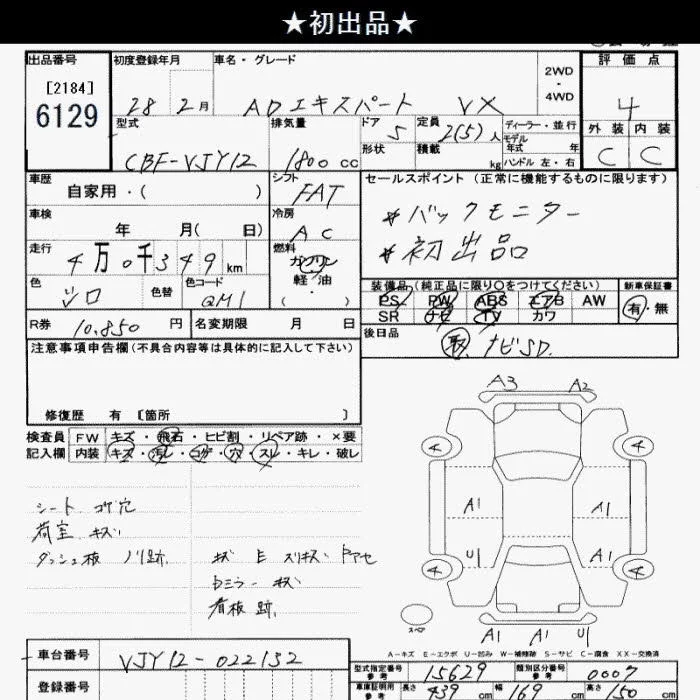 ★初出品★
出品番号
[2184]
6129
初度登録年月
28 2月
車名・グレード
ADエキスパート VX
2WD
・
4WD
評価点
4
外装 内装
C C
型式
CBF-VJY12
排気量
1800 cc
ドア
5
形状
定員
2(5)人
積載
kg
ディーラー・並行
モデル
年式 年
ハンドル 左・右
車歴
自家用・( )
シフト
FAT
セールスポイント (正常に機能するものに限ります)
*バックモニター
*初出品
車検
年 月( 日)
冷房
AC
走行
4万0千349km
燃料
ガソリン
軽油
( ・ )
色
シロ
色替
色コード
QM1
装備品 (純正品に限り○をつけてください)
PS PW ABS エアB AW
SR ナビ TV カワ
新車保証書
有・無
R券
10.850 円
名変期限 月 日
後日品
取 ナビSD.
注意事項申告欄 (不具合内容等は具体的に記入して下さい)
修復歴 有 〔箇所 〕
検査員
記入欄
FW キズ・飛石・ヒビ割・リペア跡・×要
内装 キズ・汚レ・コゲ・穴・スレ・キレ・破レ
シート コゲ穴
荷室 キズ
ダッシュ板 ノリ跡
キズ E スリキズ ドアセ
Dミラー キズ
看板跡.
A3 A2
4 4
A1 A1
U1 A1
4 4
スペア
A1 A1 U1
A-キズ E-エクボ U-凹み W-補修跡 S-サビ C-腐食 XX-交換済
車台番号
VJY12-022132
登録番号
型式指定番号
参考
15629
類別区分番号
参考
0007
車庫証明用
参考
長さ 439 cm 幅 169 cm 高さ 150 cm